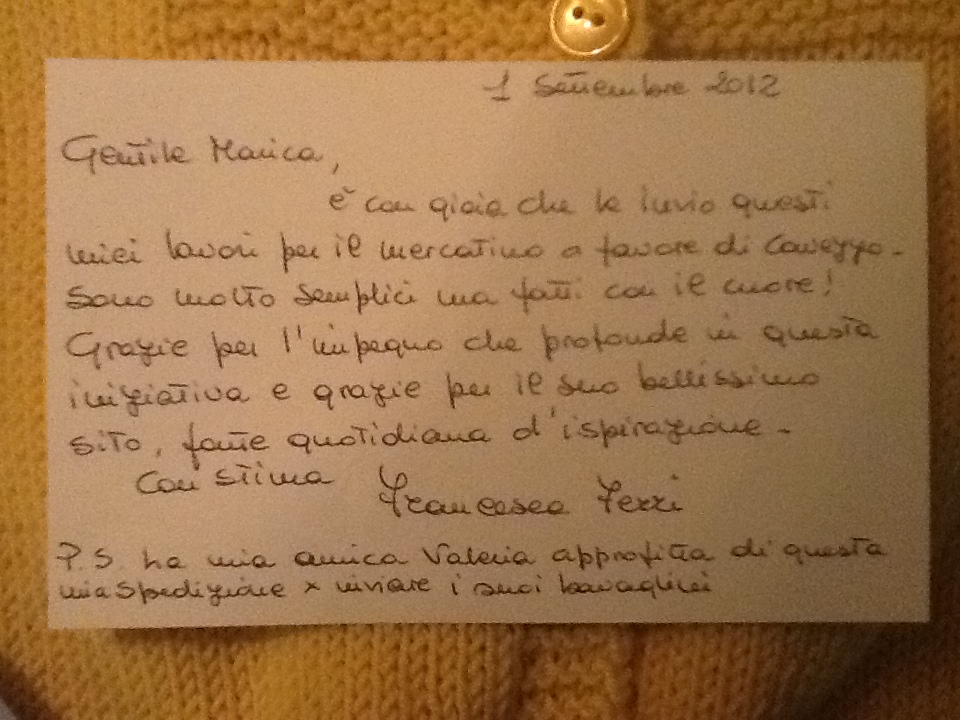 1 Settembre 2012
Gentile Marica,
è con gioia che le invio questi
miei lavori per il mercatino a favore di Cavezzo.
Sono molto semplici ma fatti con il cuore!
Grazie per l'impegno che profonde in questa
iniziativa e grazie per il suo bellissimo
sito, fonte quotidiana d'ispirazione.
Con stima Francesca Ferri
P.S. La mia amica Valeria approfitta di questa
mia spedizione x inviare i suoi bavaglini